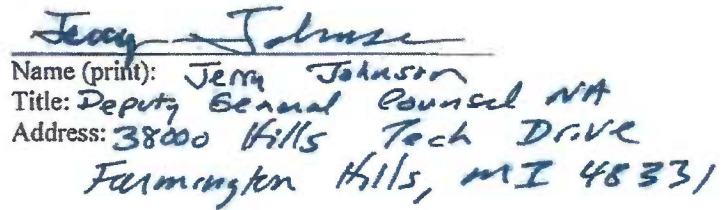 Jerry Johnson
Name (print): Jerry Johnson
Title: Deputy General Counsel NA
Address: 38000 Hills Tech Drive
Farmington Hills, MI 48331